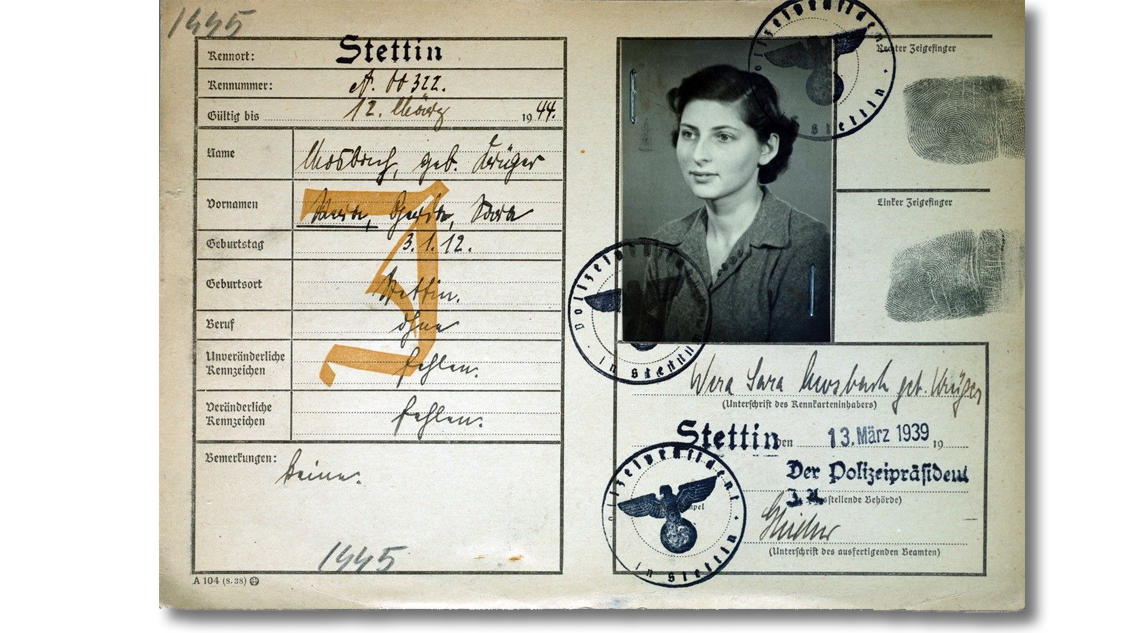 1445
Kennort: Stettin
Kennummer: A. 00322.
Gültig bis 12. März 1944.
Name Mosbach, geb. Krüger
Vornamen Wera, Gerda, Sara
Geburtstag 3.1.12.
Geburtsort Stettin.
Beruf ohne
Unveränderliche
Kennzeichen fehlen.
Veränderliche
Kennzeichen fehlen.
Bemerkungen: Keine.
J
1445
A 104 (8. 38)
Polizeipräsident
in Stettin
Rechter Zeigefinger
Linker Zeigefinger
Polizeipräsident
in Stettin
Wera Sara Mosbach geb. Krüger
(Unterschrift des Kennkarteninhabers)
Stettin den 13. März 1939 19
Der Polizeipräsident
(Ausstellende Behörde)
Polizeipräsident
in Stettin
(Unterschrift des ausfertigenden Beamten)